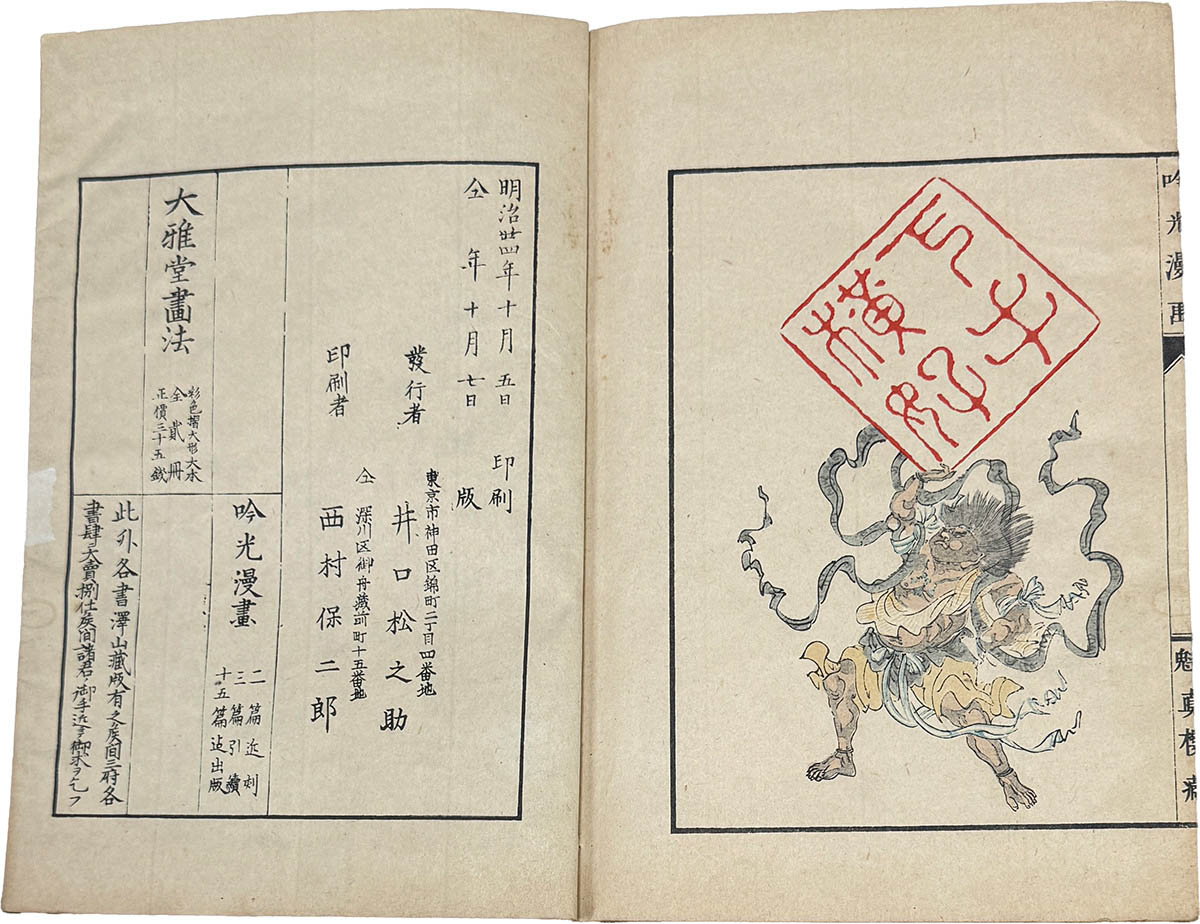 吟光漫画
魁真楼
明治廿四年十月五日印刷
仝年十月七日版
發行者
東京市神田区錦町二丁目四番地
井口松之助
印刷者
仝深川区御舟蔵前町十五番地
西村保二郎
大雅堂畫法
彩色摺大形大本
全貳冊
正價三十五錢
吟光漫畫
二篇近刻
三篇引續
十五篇迠出版
此外各書澤山藏版有之候間三府各
書肆ヲ大賣捌仕候間諸君御手近御求ヲ乞フ